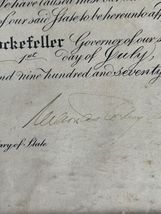 We have caused these our
of our said State to be hereunto a
ckefeller Governor of our s
1st day of July,
nd nine hundred and seventy
ary of State